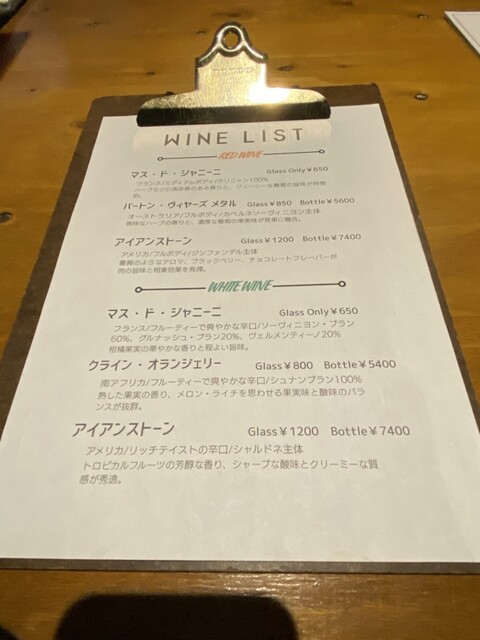 WINE LIST
RED WINE
マス・ド・ジャニーニ Glass Only￥650
フランス/ミディアムボディ/カリニャン100%
ハーブなどの清涼感のある香りと、ジューシーな葡萄の旨味が特徴
的。
バートン・ヴィヤーズ メタル Glass￥850 Bottle￥5600
オーストラリア/フルボディ/カベルネソーヴィニヨン主体
爽快なハーブの香りと、濃厚な葡萄の果実味が見事に融合。
アイアンストーン Glass￥1200 Bottle￥7400
アメリカ/フルボディ/ジンファンデル主体
薔薇のようなアロマ、ブラックベリー、チョコレートフレーバーが
肉の旨味と相乗効果を発揮。
WHITE WINE
マス・ド・ジャニーニ Glass Only￥650
フランス/フルーティーで爽やかな辛口/ソーヴィニヨン・ブラン
60%、グルナッシュ・ブラン20%、ヴェルメンティーノ20%
柑橘果実の華やかな香りと程よい旨味。
クライン・オランジェリー Glass￥800 Bottle￥5400
南アフリカ/フルーティーで爽やかな辛口/シュナンブラン100%
熟した果実の香り、メロン・ライチを思わせる果実味と酸味のバラ
ンスが抜群。
アイアンストーン Glass￥1200 Bottle￥7400
アメリカ/リッチテイストの辛口/シャルドネ主体
トロピカルフルーツの芳醇な香り、シャープな酸味とクリーミーな質
感が秀逸。